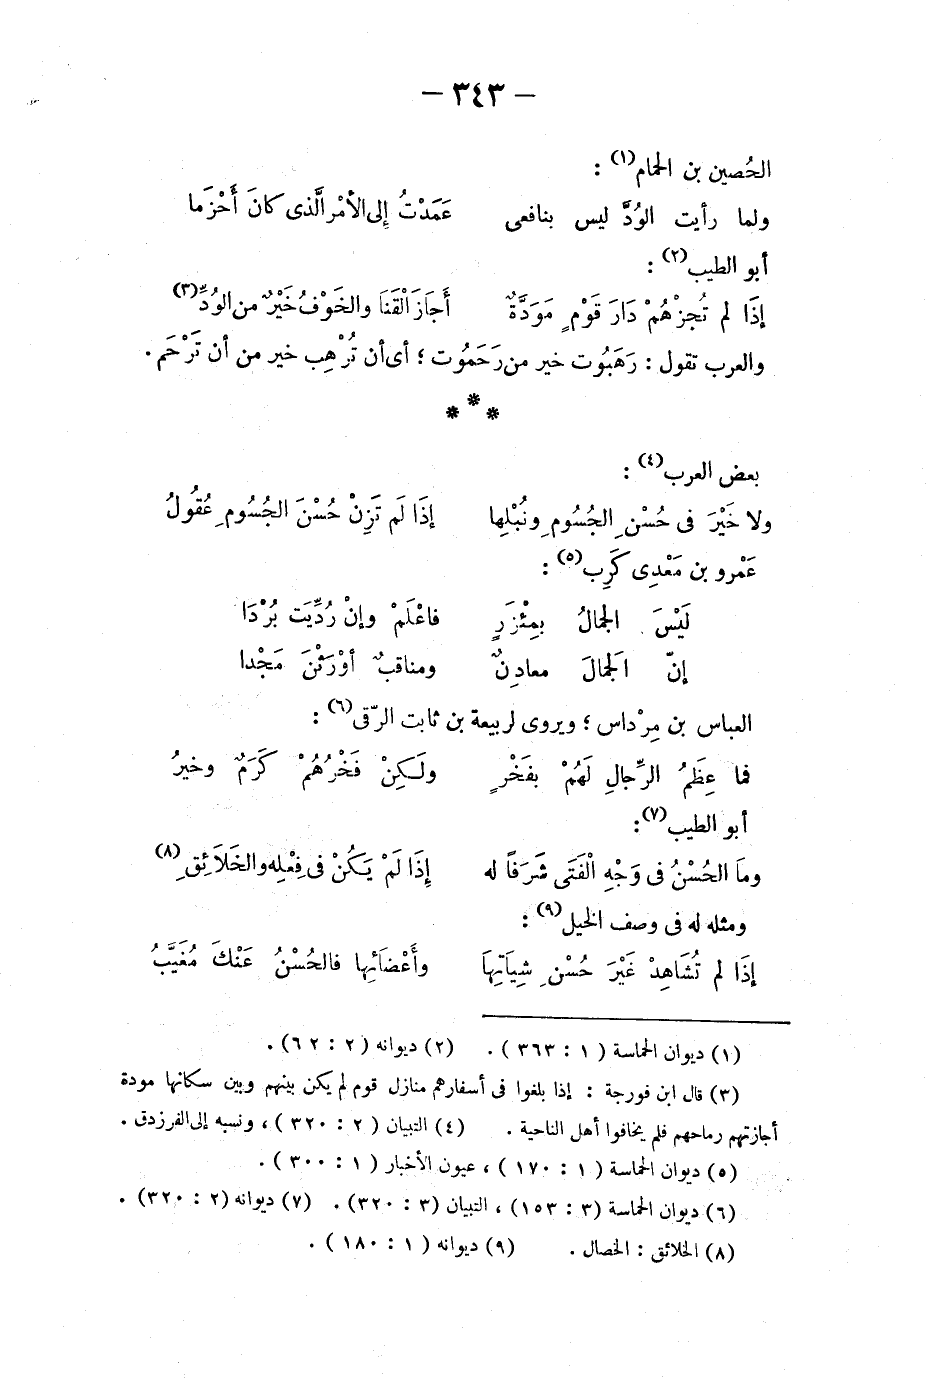 — ٣٤٣ —
الحُصين بن الحمام(١) :
ولما رأيت الوُدَّ ليس بنافعى عَمَدْتُ إِلى الأمْر الَّذى كانَ أَحْزَما
أبو الطيب(٢) :
إذَا لم تُجزْهُمْ دَارَ قَوْمٍ مَوَدَّةٌ أَجَازَ الْقَنَا والخَوْفُ خَيْرٌ من الوُدِّ(٣)
والعرب تقول : رَهَبُوت خير من رَحَمُوت ؛ أى أن تُرْهِب خير من أن تَرْحَم .
* * *
بعض العرب(٤) :
ولا خَيْرَ فى حُسْنِ الجُسُومِ ونُبْلِها إذَا لَم تَزِنْ حُسْنَ الجُسُومِ عُقُولُ
عَمْرو بن مَعْدِى كَرِب(٥) :
لَيْسَ الجمالُ بِمِئْزَرٍ فاعْلَمْ وإنْ رُدِّيَت بُرْدَا
إنّ الَجمالَ معادِنٌ ومناقبٌ أوْرَثْنَ مَجْدا
العباس بن مِرْداس ؛ ويروى لربيعة بن ثابت الرّقى(٦) :
فما عِظَمُ الرِّجالِ لَهُمْ بفَخْرٍ ولَـكِنْ فَخْرُهُمْ كَرَمٌ وخيرُ
أبو الطيب(٧):
ومَا الحُسْنُ فى وَجْهِ الْفَتَى شَرَفًا له إِذَا لَمْ يَكُنْ فى فِعْلِه والخَلَائِقِ(٨)
ومثله له فى وصف الخيل(٩) :
إذَا لم تُشَاهِدْ غَيْرَ حُسْنِ شِيَاتِهَا وأَعْضَائِها فالحُسْنُ عَنْكَ مُغَيَّبُ
(١) ديوان الحماسة ( ١ : ٣٦٣ ) . (٢) ديوانه ( ٢ : ٦٢) .
(٣) قال ابن فورجة : إذا بلغوا فى أسفارهم منازل قوم لم يكن بينهم وبين سكانها مودة
أجازتهم رماحهم فلم يخافوا أهل الناحية . (٤) التبيان ( ٢ : ٣٢٠ ) ، ونسبه إلى الفرزدق .
(٥) ديوان الحماسة ( ١ : ١٧٠ ) ، عيون الأخبار ( ١ : ٣٠٠ ) .
(٦) ديوان الحماسة (٣ : ١٥٣) ، التبيان (٣ : ٣٢٠) . (٧) ديوانه (٢ : ٣٢٠) .
(٨) الخلائق : الخصال . (٩) ديوانه ( ١ : ١٨٠ ) .